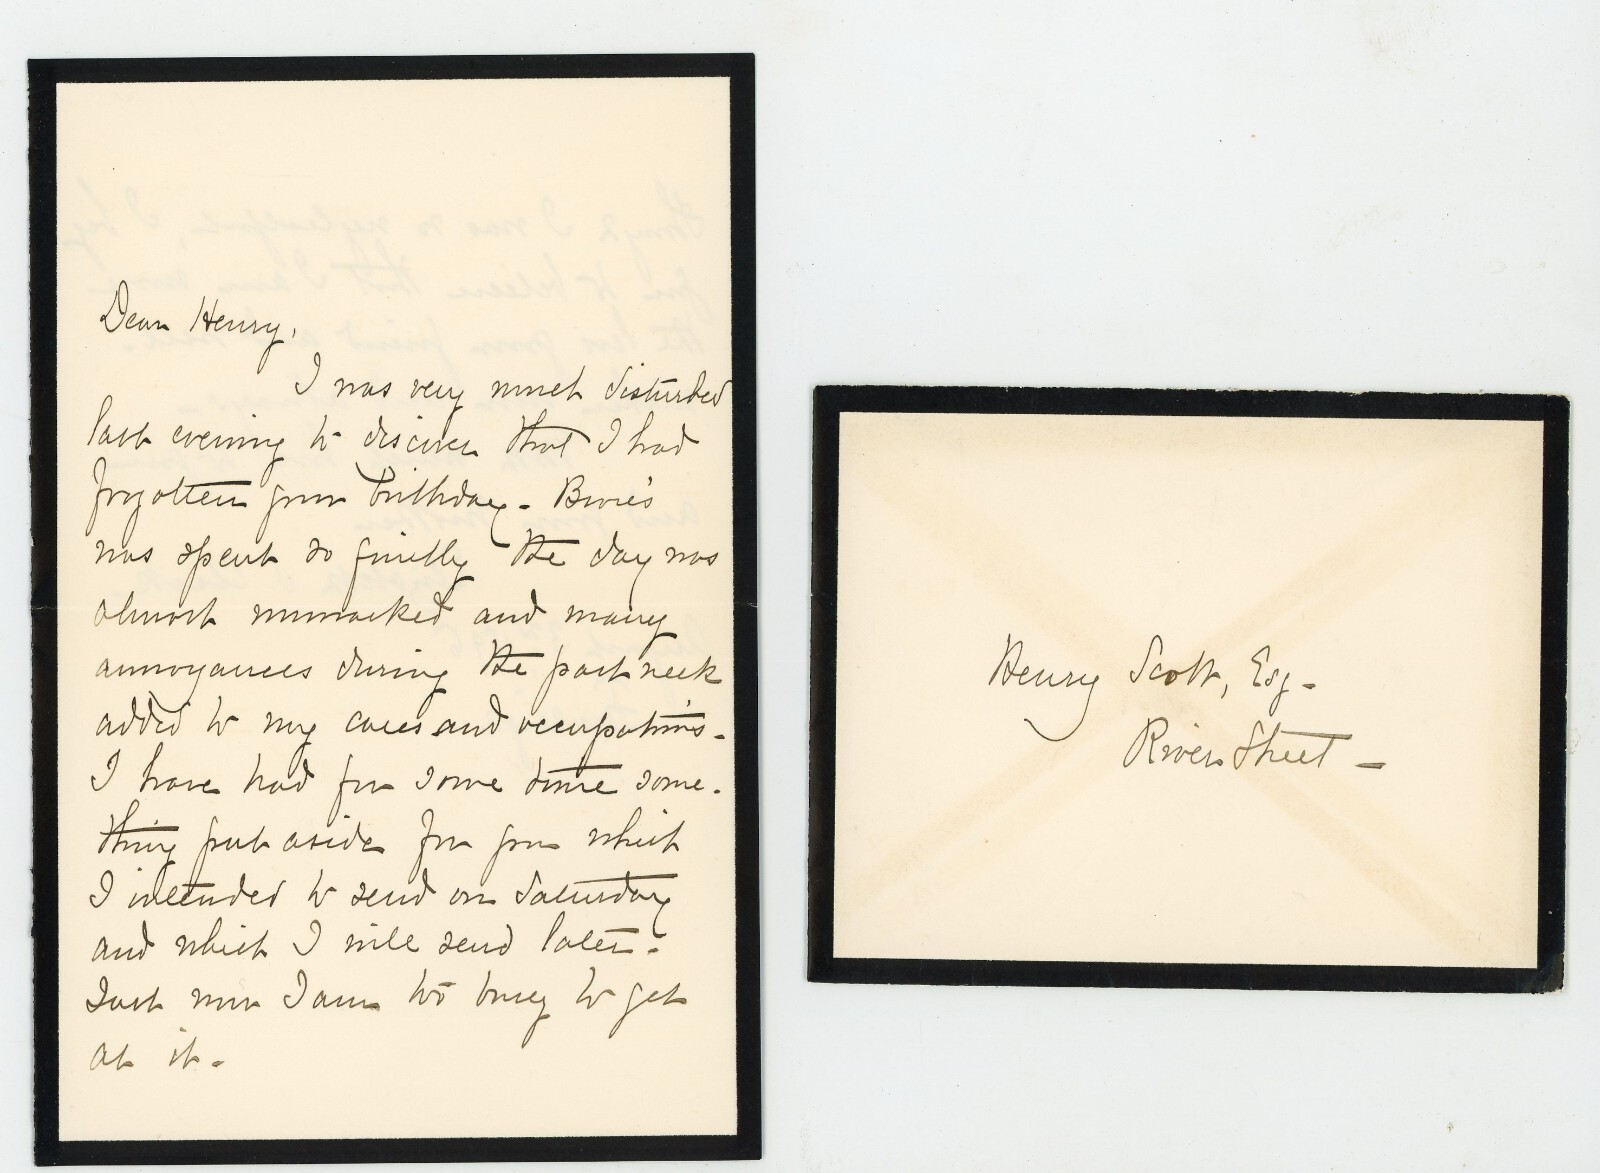 Dear Henry,
I was very much disturbed
last evening to discover that I had
forgotten your birthday -
was spent so quietly the day was
almost unmarked and many
annoyances during the past week
added to my cares and occupations -
I have had for some time some-
thing put aside for you which
I intended to send on Saturday
and which I will send later -
Just now I am too busy to get
at it -
Henry Scott, Esq -
River Street -